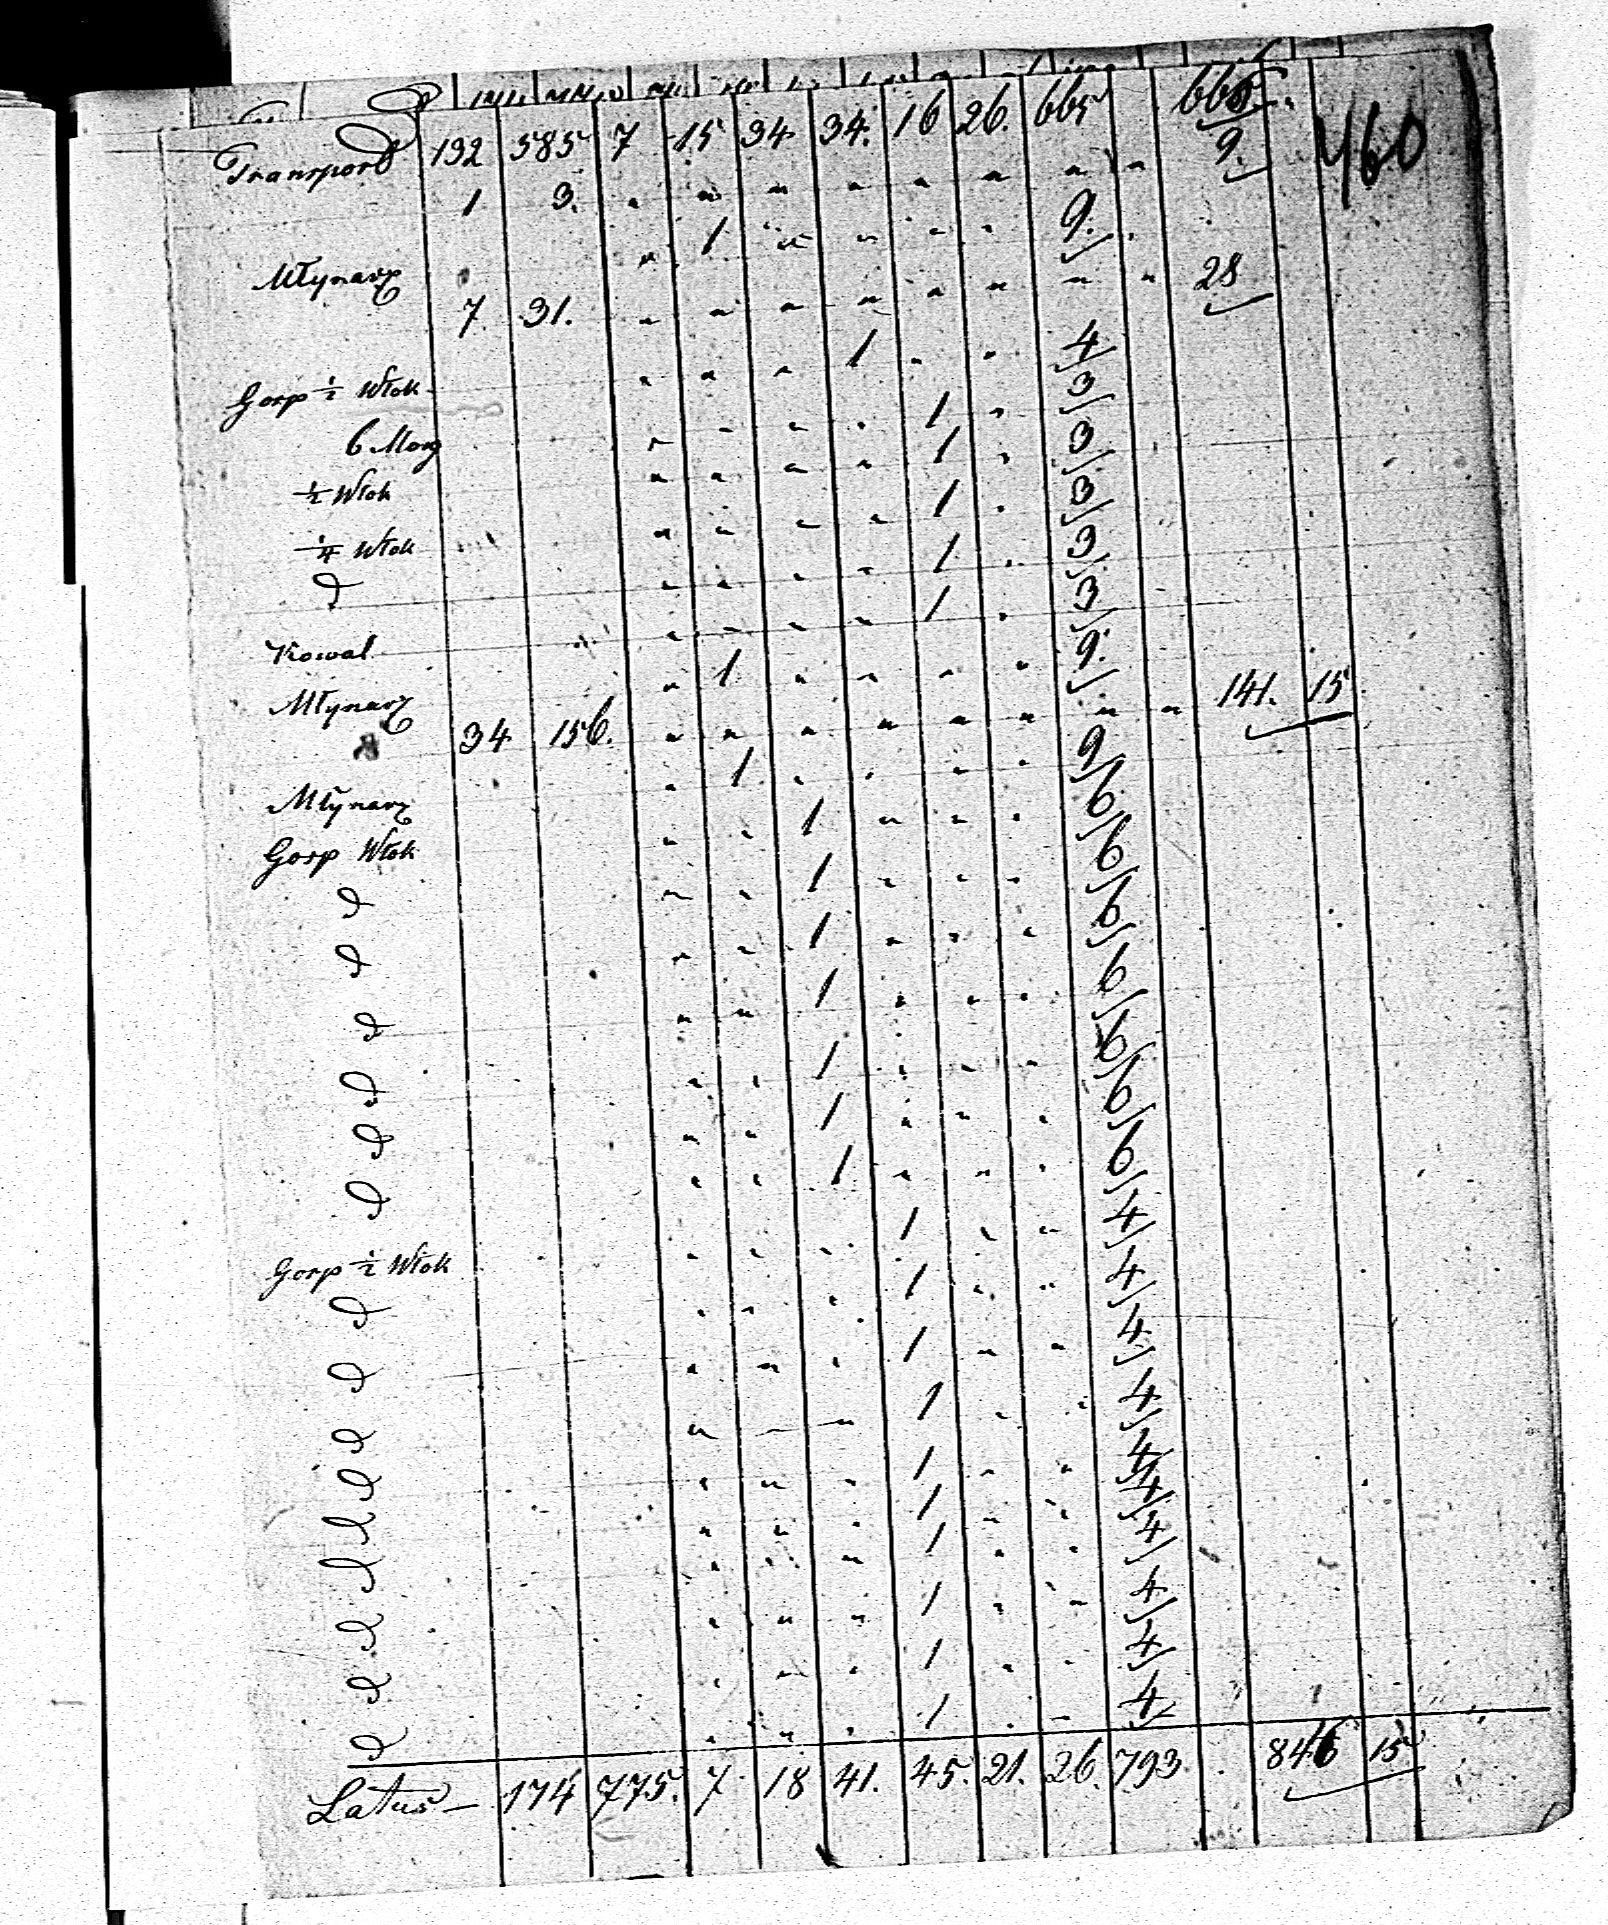 Transport 132 585 7 15 34 34. 16 26. 665 666.
460
1 3. " " " " " " " " 9.
Młynarz " 1 " " " " 9.
7. 31. " " " " " " " " 28
Gorp ½ Włok " " " 1 " " 4
6 Morg " " " " 1 " 3
½ Włok " " " " 1 " 3
¼ Włok " " " " 1 " 3
d " " " " 1 " 3
Kowal " " " " 1 " 3
Młynarz " 1 " " " " 9.
34 156. " " " " " " " " 141. 15
Młynarz " 1 " " " " 9
Gorp Włok " " 1 " " " 6
d " " 1 " " " 6
d " " 1 " " " 6
d " " 1 " " " 6
d " " 1 " " " 6
d " " 1 " " " 6
d " " 1 " " " 6
Gorp ½ Włok " " " 1 " " 4
d " " " 1 " " 4
d " " " 1 " " 4
d " " " 1 " " 4
d " " " 1 " " 4
d " " " 1 " " 4
d " " " 1 " " 4
d " " " 1 " " 4
d " " " 1 " " 4
d " " " 1 " " 4
Latus – 174 775. 7 18 41. 45. 21. 26. 793 846 15